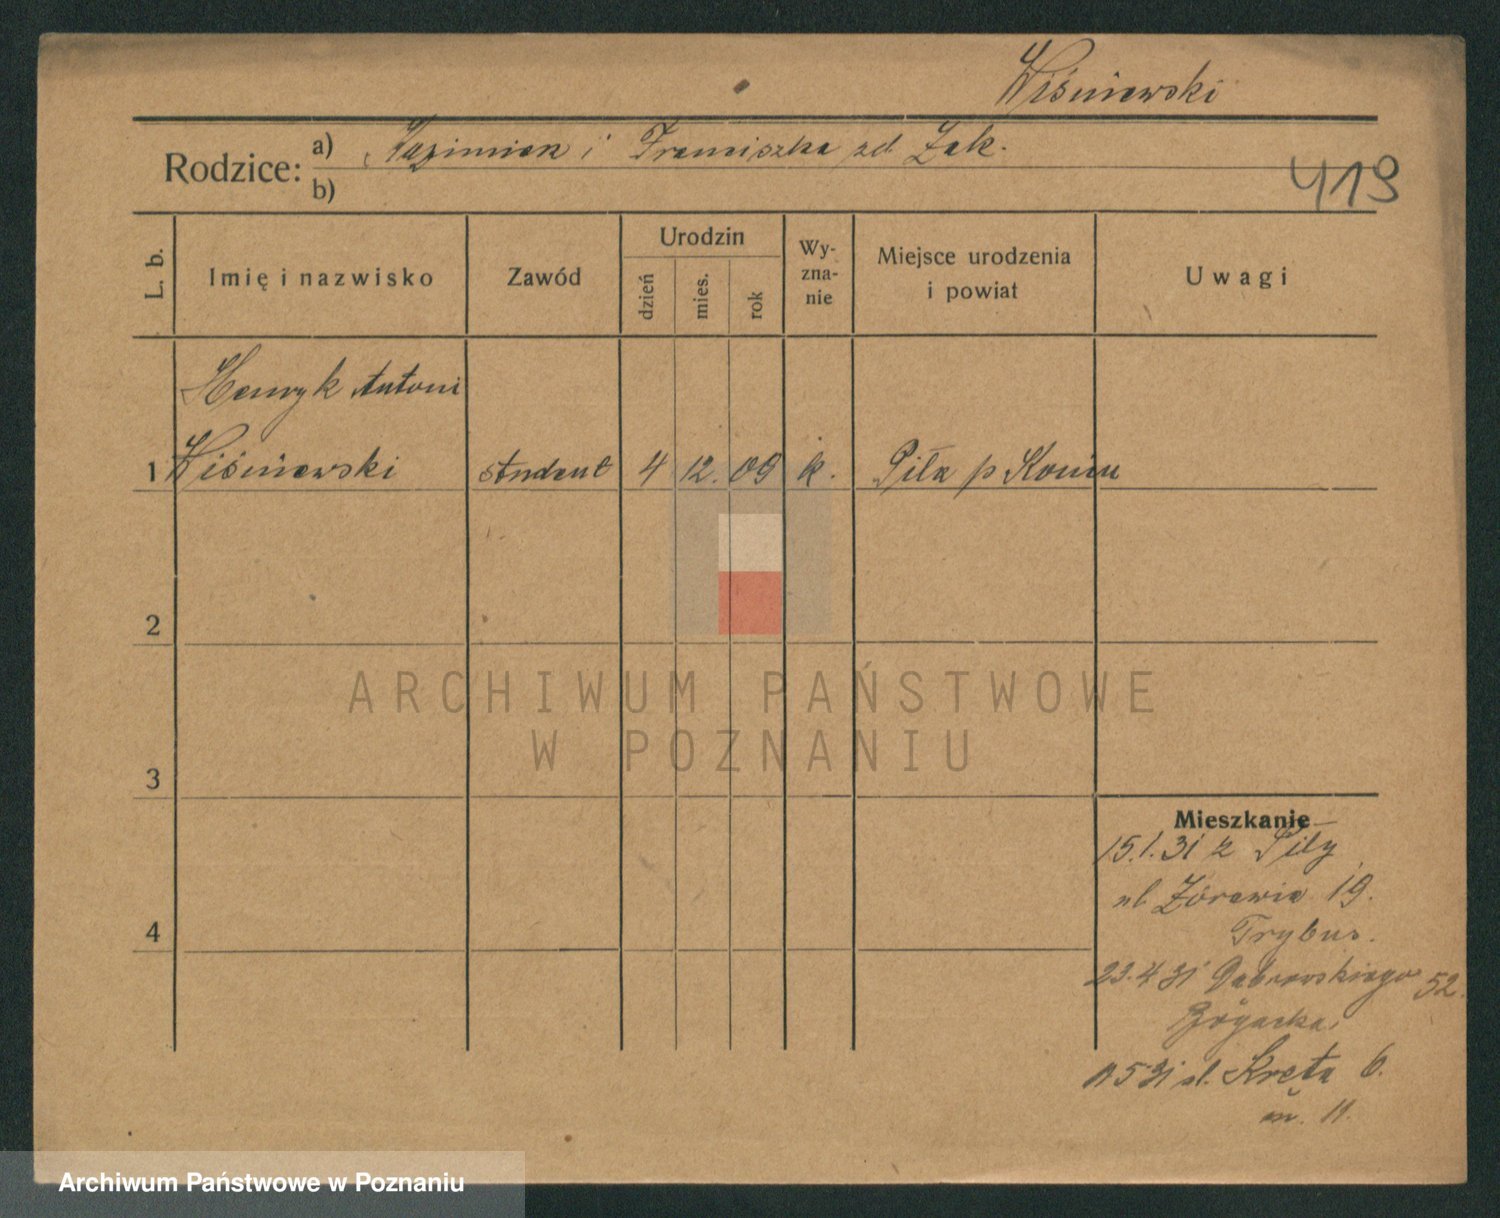 Wiśniewski
Rodzice: a) Kazimierz i Franciszka zd. Żak.
b)
419
L. b.
Imię i nazwisko
Zawód
Urodzin
dzień
mies.
rok
Wy-
zna-
nie
Miejsce urodzenia
i powiat
Uwagi
Henryk Antoni
1 Wiśniewski student 4 12. 09 k. Piła p Konin
2
ARCHIWUM PAŃSTWOWE
W POZNANIU
3
Mieszkanie
15.1.31 z Piły
ul. Żórawia 19.
4
Trybus.
23.4 31 Dąbrowskiego 52.
5 31 ul. Kręta 6.
m. 11.
Archiwum Państwowe w Poznaniu